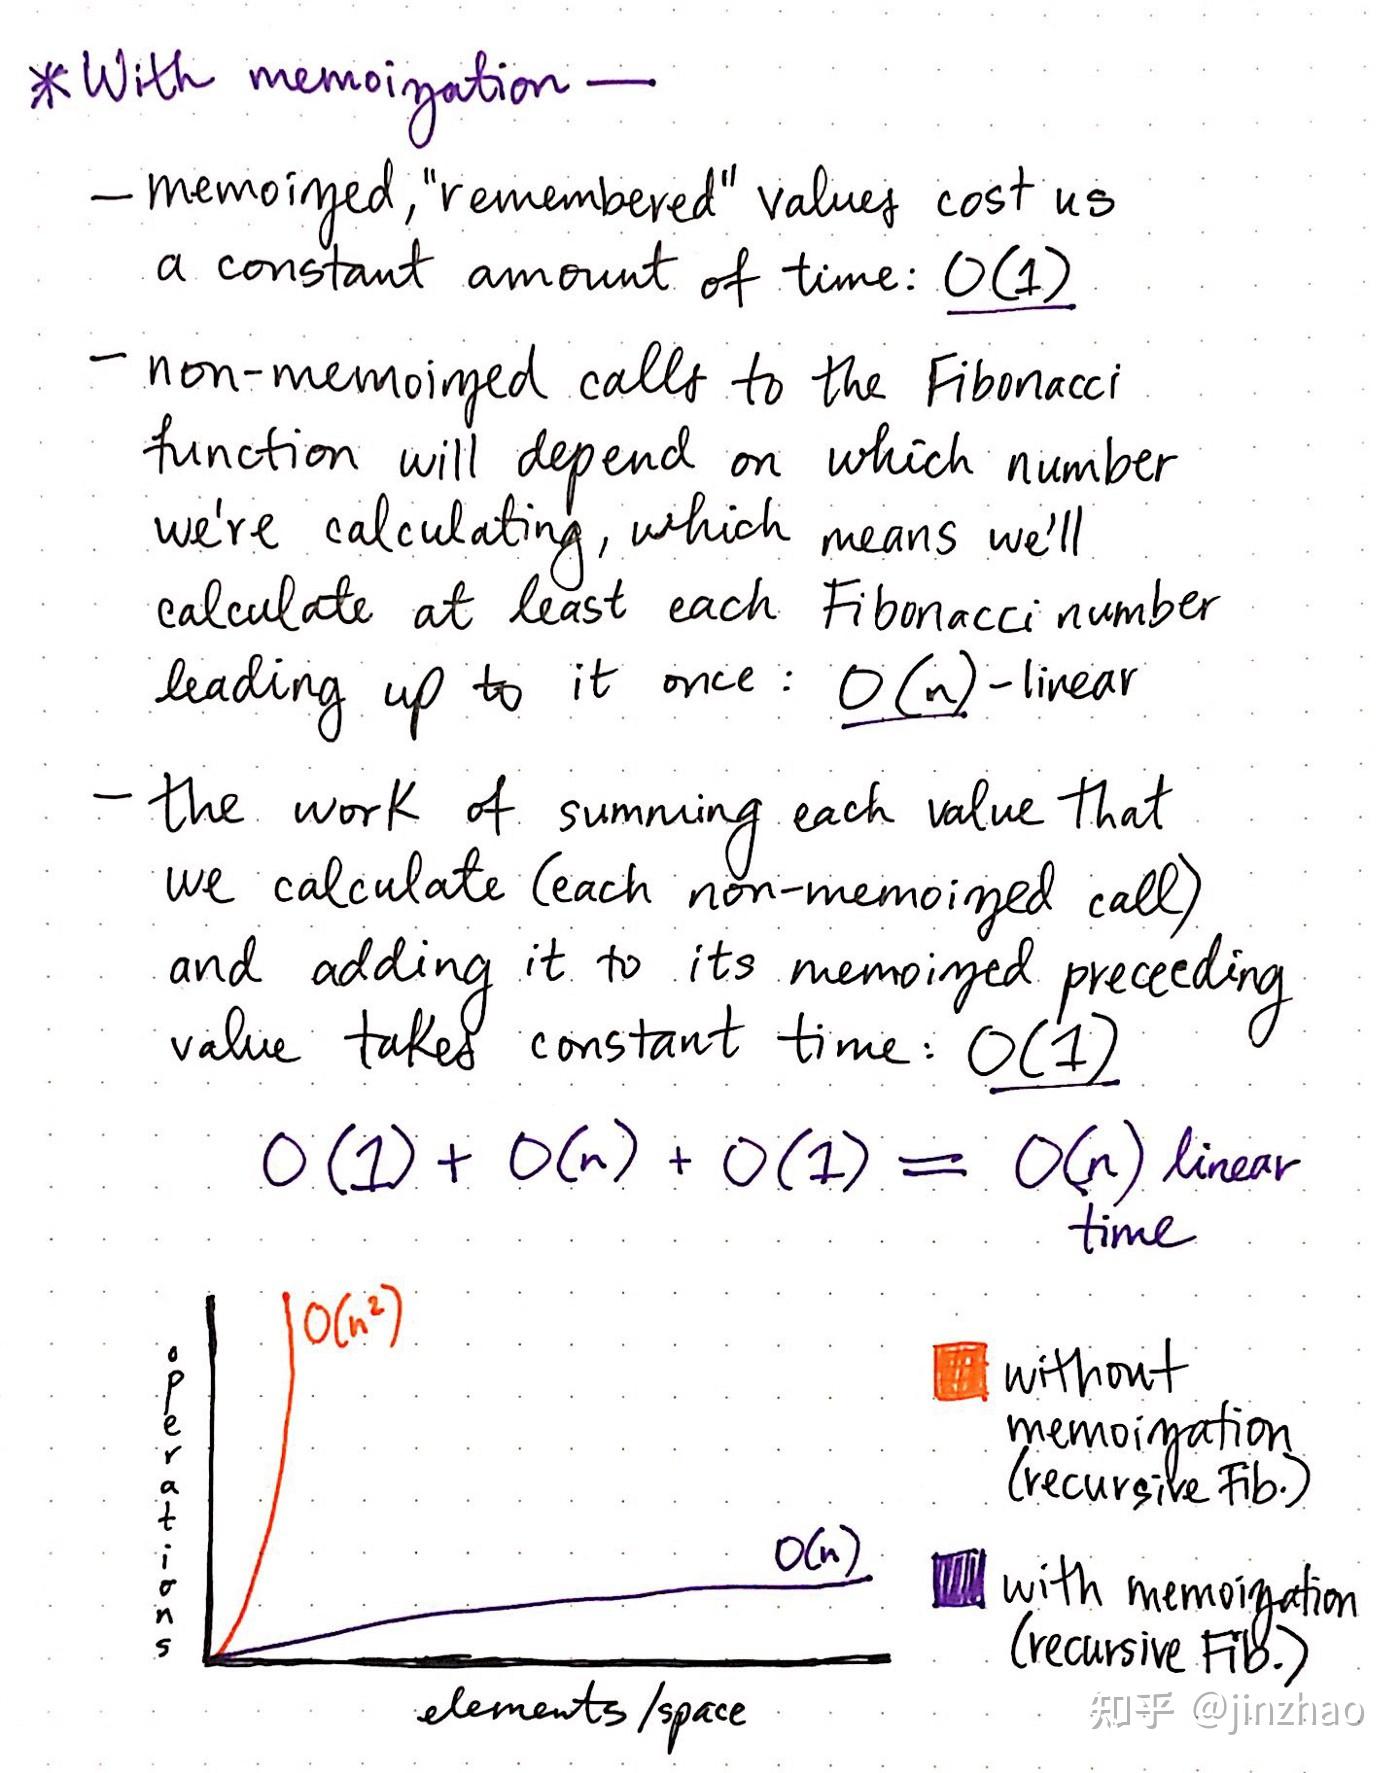 *With memoization —
– memoized, "remembered" values cost us
a constant amount of time: O(1)
– non-memoized calls to the Fibonacci
function will depend on which number
we're calculating, which means we'll
calculate at least each Fibonacci number
leading up to it once: O(n) - linear
– the work of summing each value that
we calculate (each non-memoized call)
and adding it to its memoized preceeding
value takes constant time: O(1)
O(1) + O(n) + O(1) = O(n) linear
time
O(n²)
operations
O(n)
elements/space
without
memoization
(recursive Fib.)
with memoization
(recursive Fib.)
知乎 @jinzhao